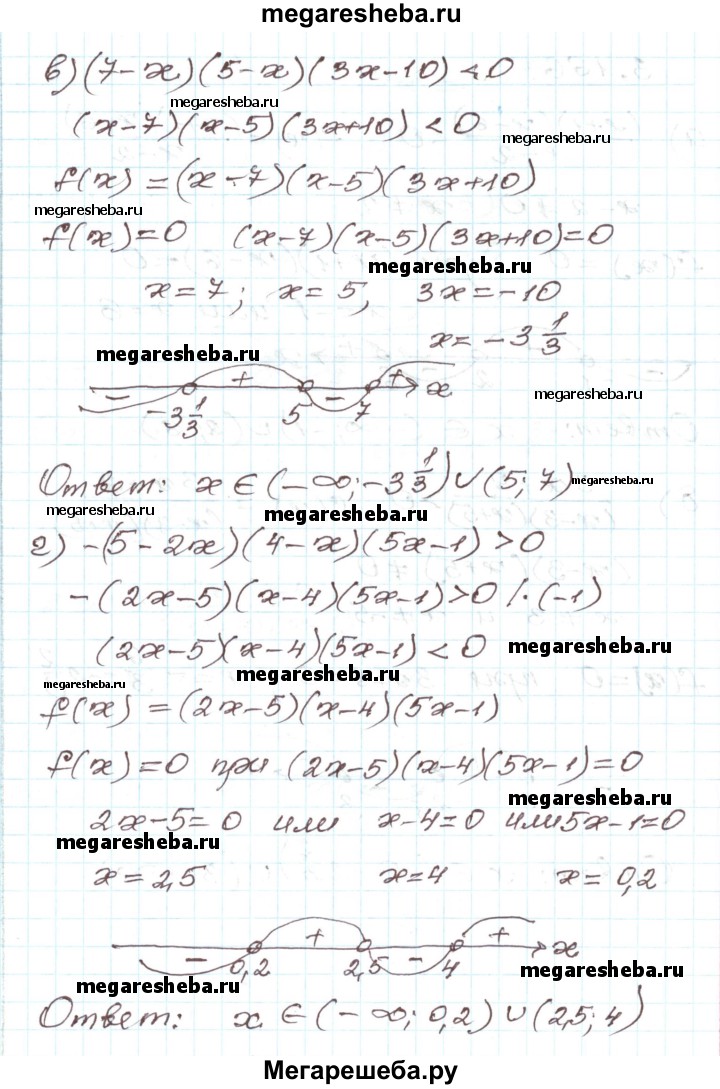 megaresheba.ru
в) (7-x)(5-x)(3x-10) < 0
megaresheba.ru
(x-7)(x-5)(3x+10) < 0
megaresheba.ru
f(x) = (x-7)(x-5)(3x+10)
megaresheba.ru
f(x)=0 (x-7)(x-5)(3x+10)=0
megaresheba.ru
x=7; x=5, 3x=-10
x=-3 1/3
megaresheba.ru
- + - + x
megaresheba.ru
-3 1/3 5 7
Ответ: x∈(-∞;-3 1/3)∪(5;7)
megaresheba.ru
megaresheba.ru
megaresheba.ru
г) -(5-2x)(4-x)(5x-1)>0
-(2x-5)(x-4)(5x-1)>0 /·(-1)
(2x-5)(x-4)(5x-1)<0
megaresheba.ru
megaresheba.ru
megaresheba.ru
f(x) = (2x-5)(x-4)(5x-1)
f(x)=0 при (2x-5)(x-4)(5x-1)=0
megaresheba.ru
2x-5=0 или x-4=0 или 5x-1=0
megaresheba.ru
x=2,5 x=4 x=0,2
- + - + x
0,2 2,5 4
megaresheba.ru
megaresheba.ru
Ответ: x∈(-∞;0,2)∪(2,5;4)
Мегарешеба.ру